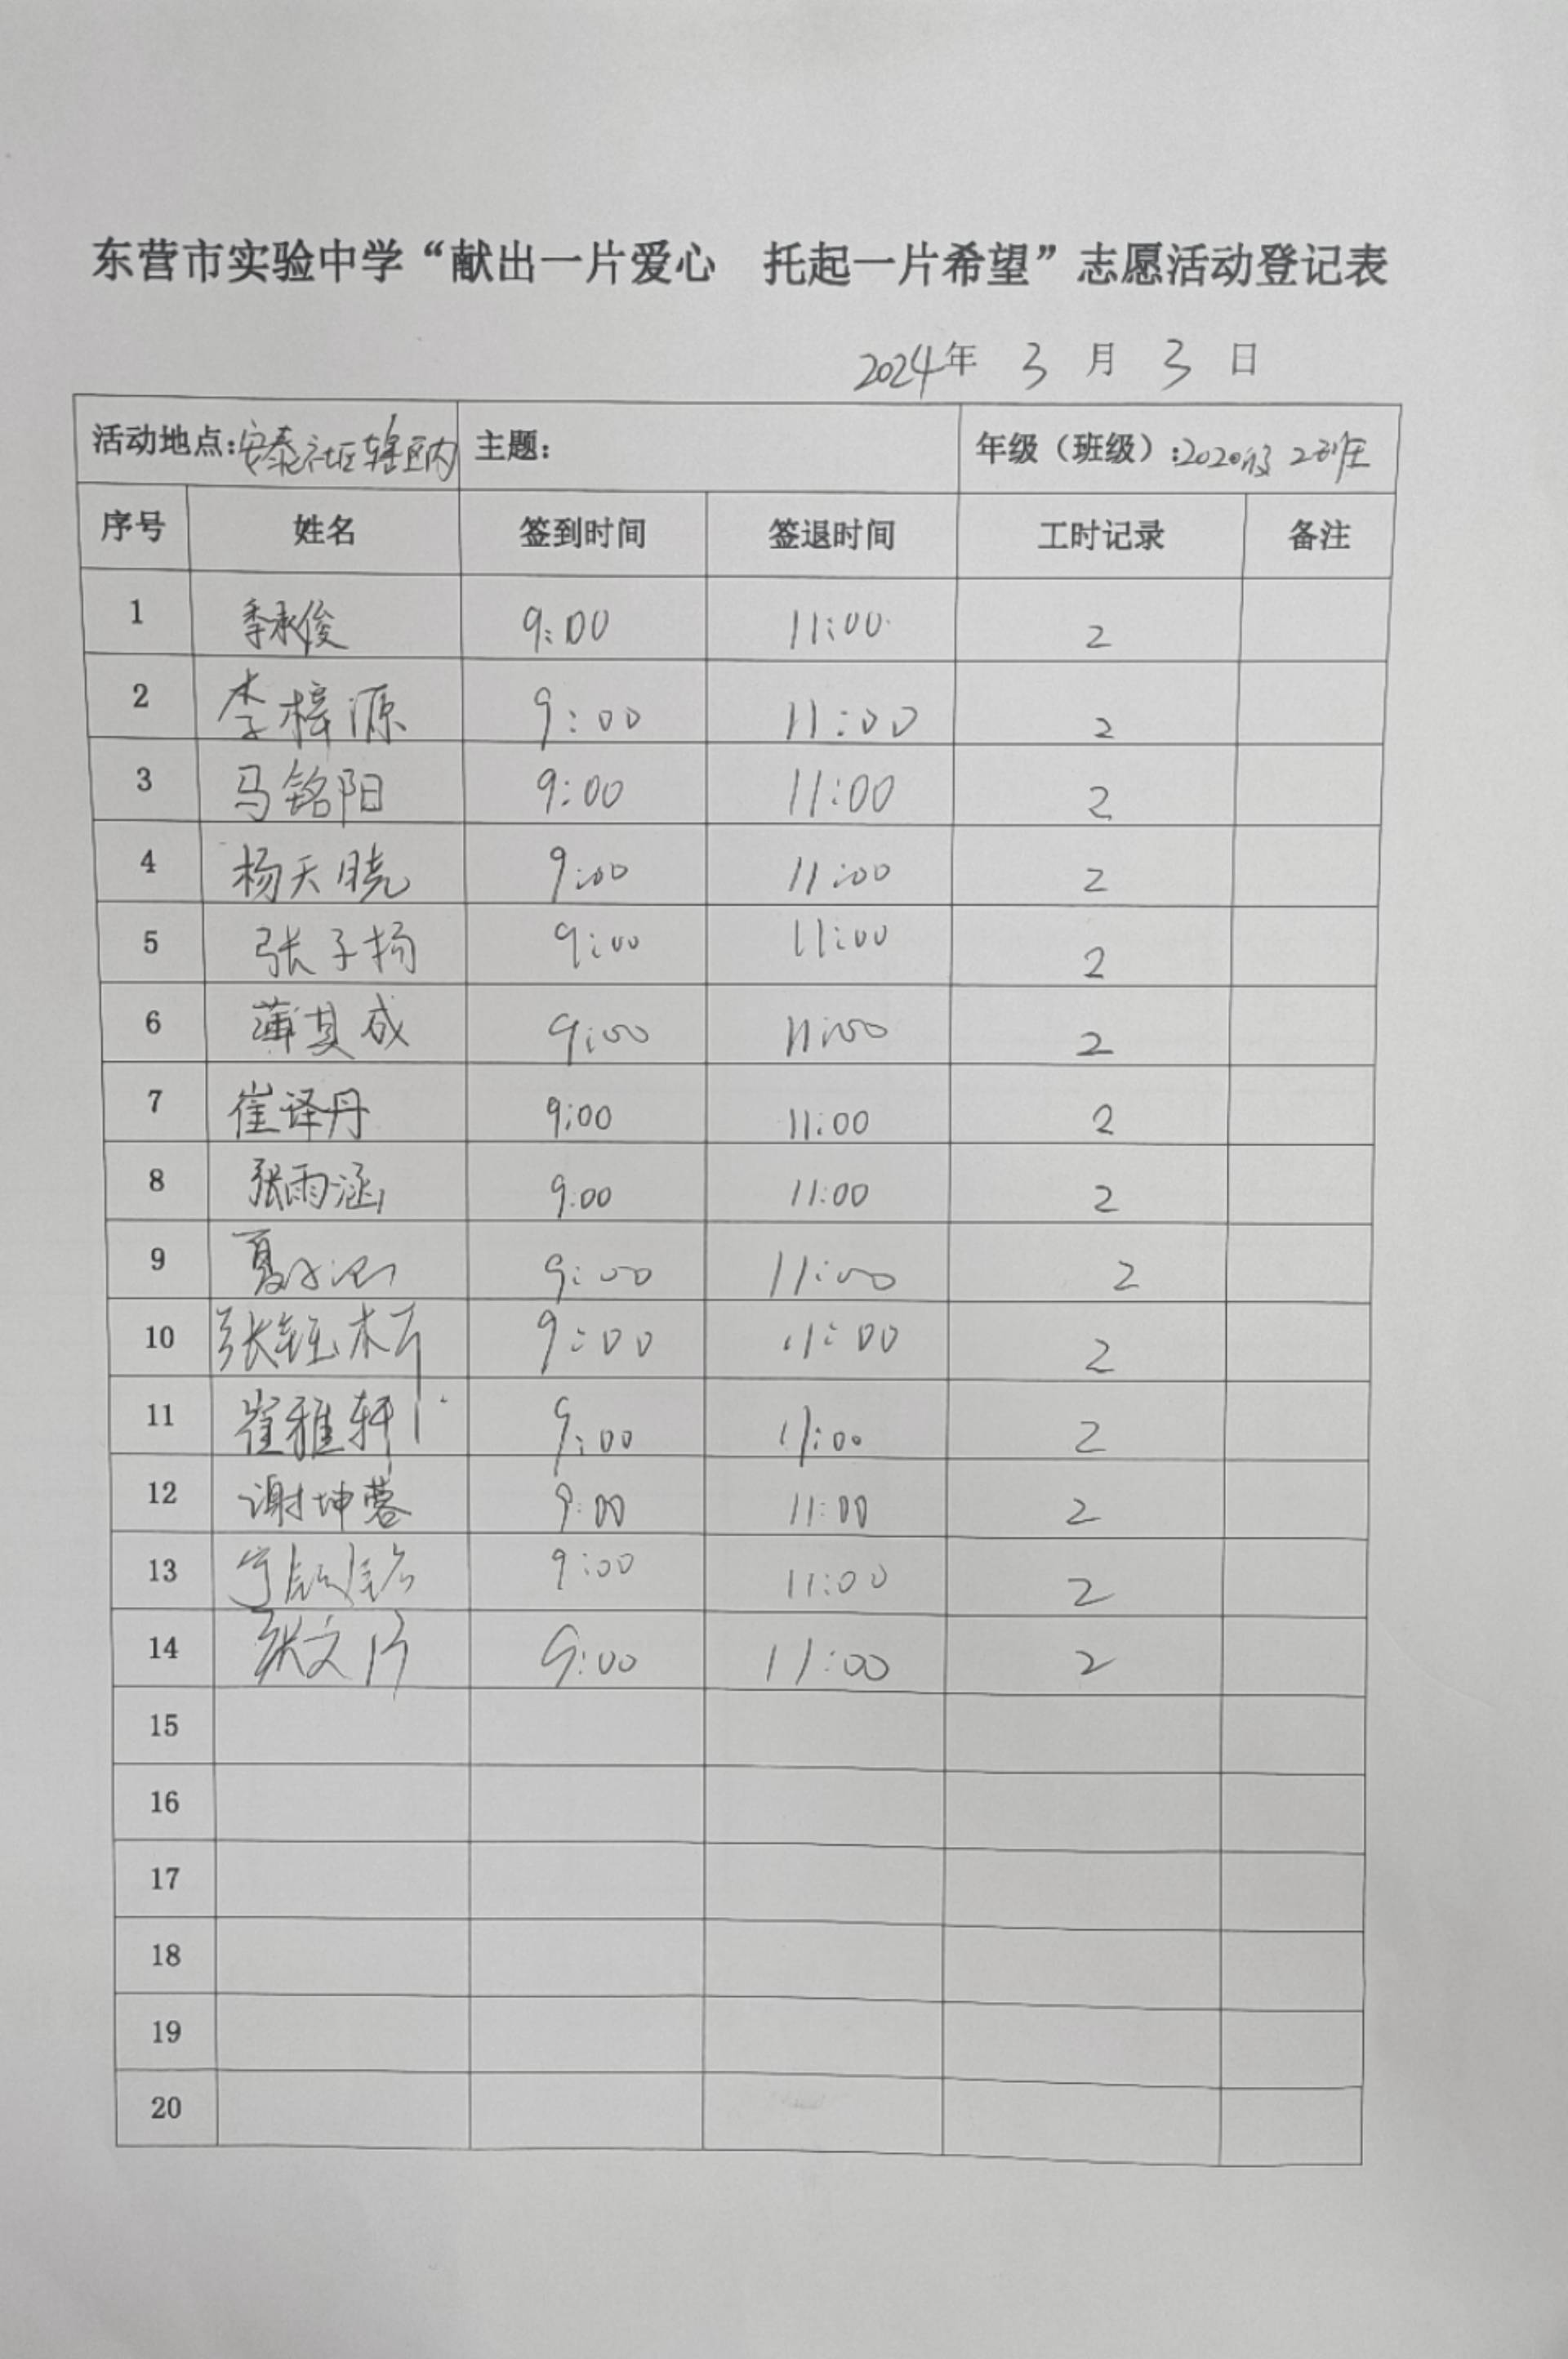 东营市实验中学“献出一片爱心 托起一片希望”志愿活动登记表
2024年 3 月 3 日
活动地点:安泰社区辖区内 主题: 年级（班级）:2020级 2班
序号 姓名 签到时间 签退时间 工时记录 备注
1 季承俊 9:00 11:00 2
2 李梓源 9:00 11:00 2
3 马铭阳 9:00 11:00 2
4 杨天晓 9:00 11:00 2
5 张子扬 9:00 11:00 2
6 薄其成 9:00 11:00 2
7 崔译丹 9:00 11:00 2
8 张雨涵 9:00 11:00 2
9 9:00 11:00 2
10 张钰析 9:00 11:00 2
11 崔雅轩 9:00 11:00 2
12 谢坤蓉 9:00 11:00 2
13 9:00 11:00 2
14 9:00 11:00 2
15
16
17
18
19
20